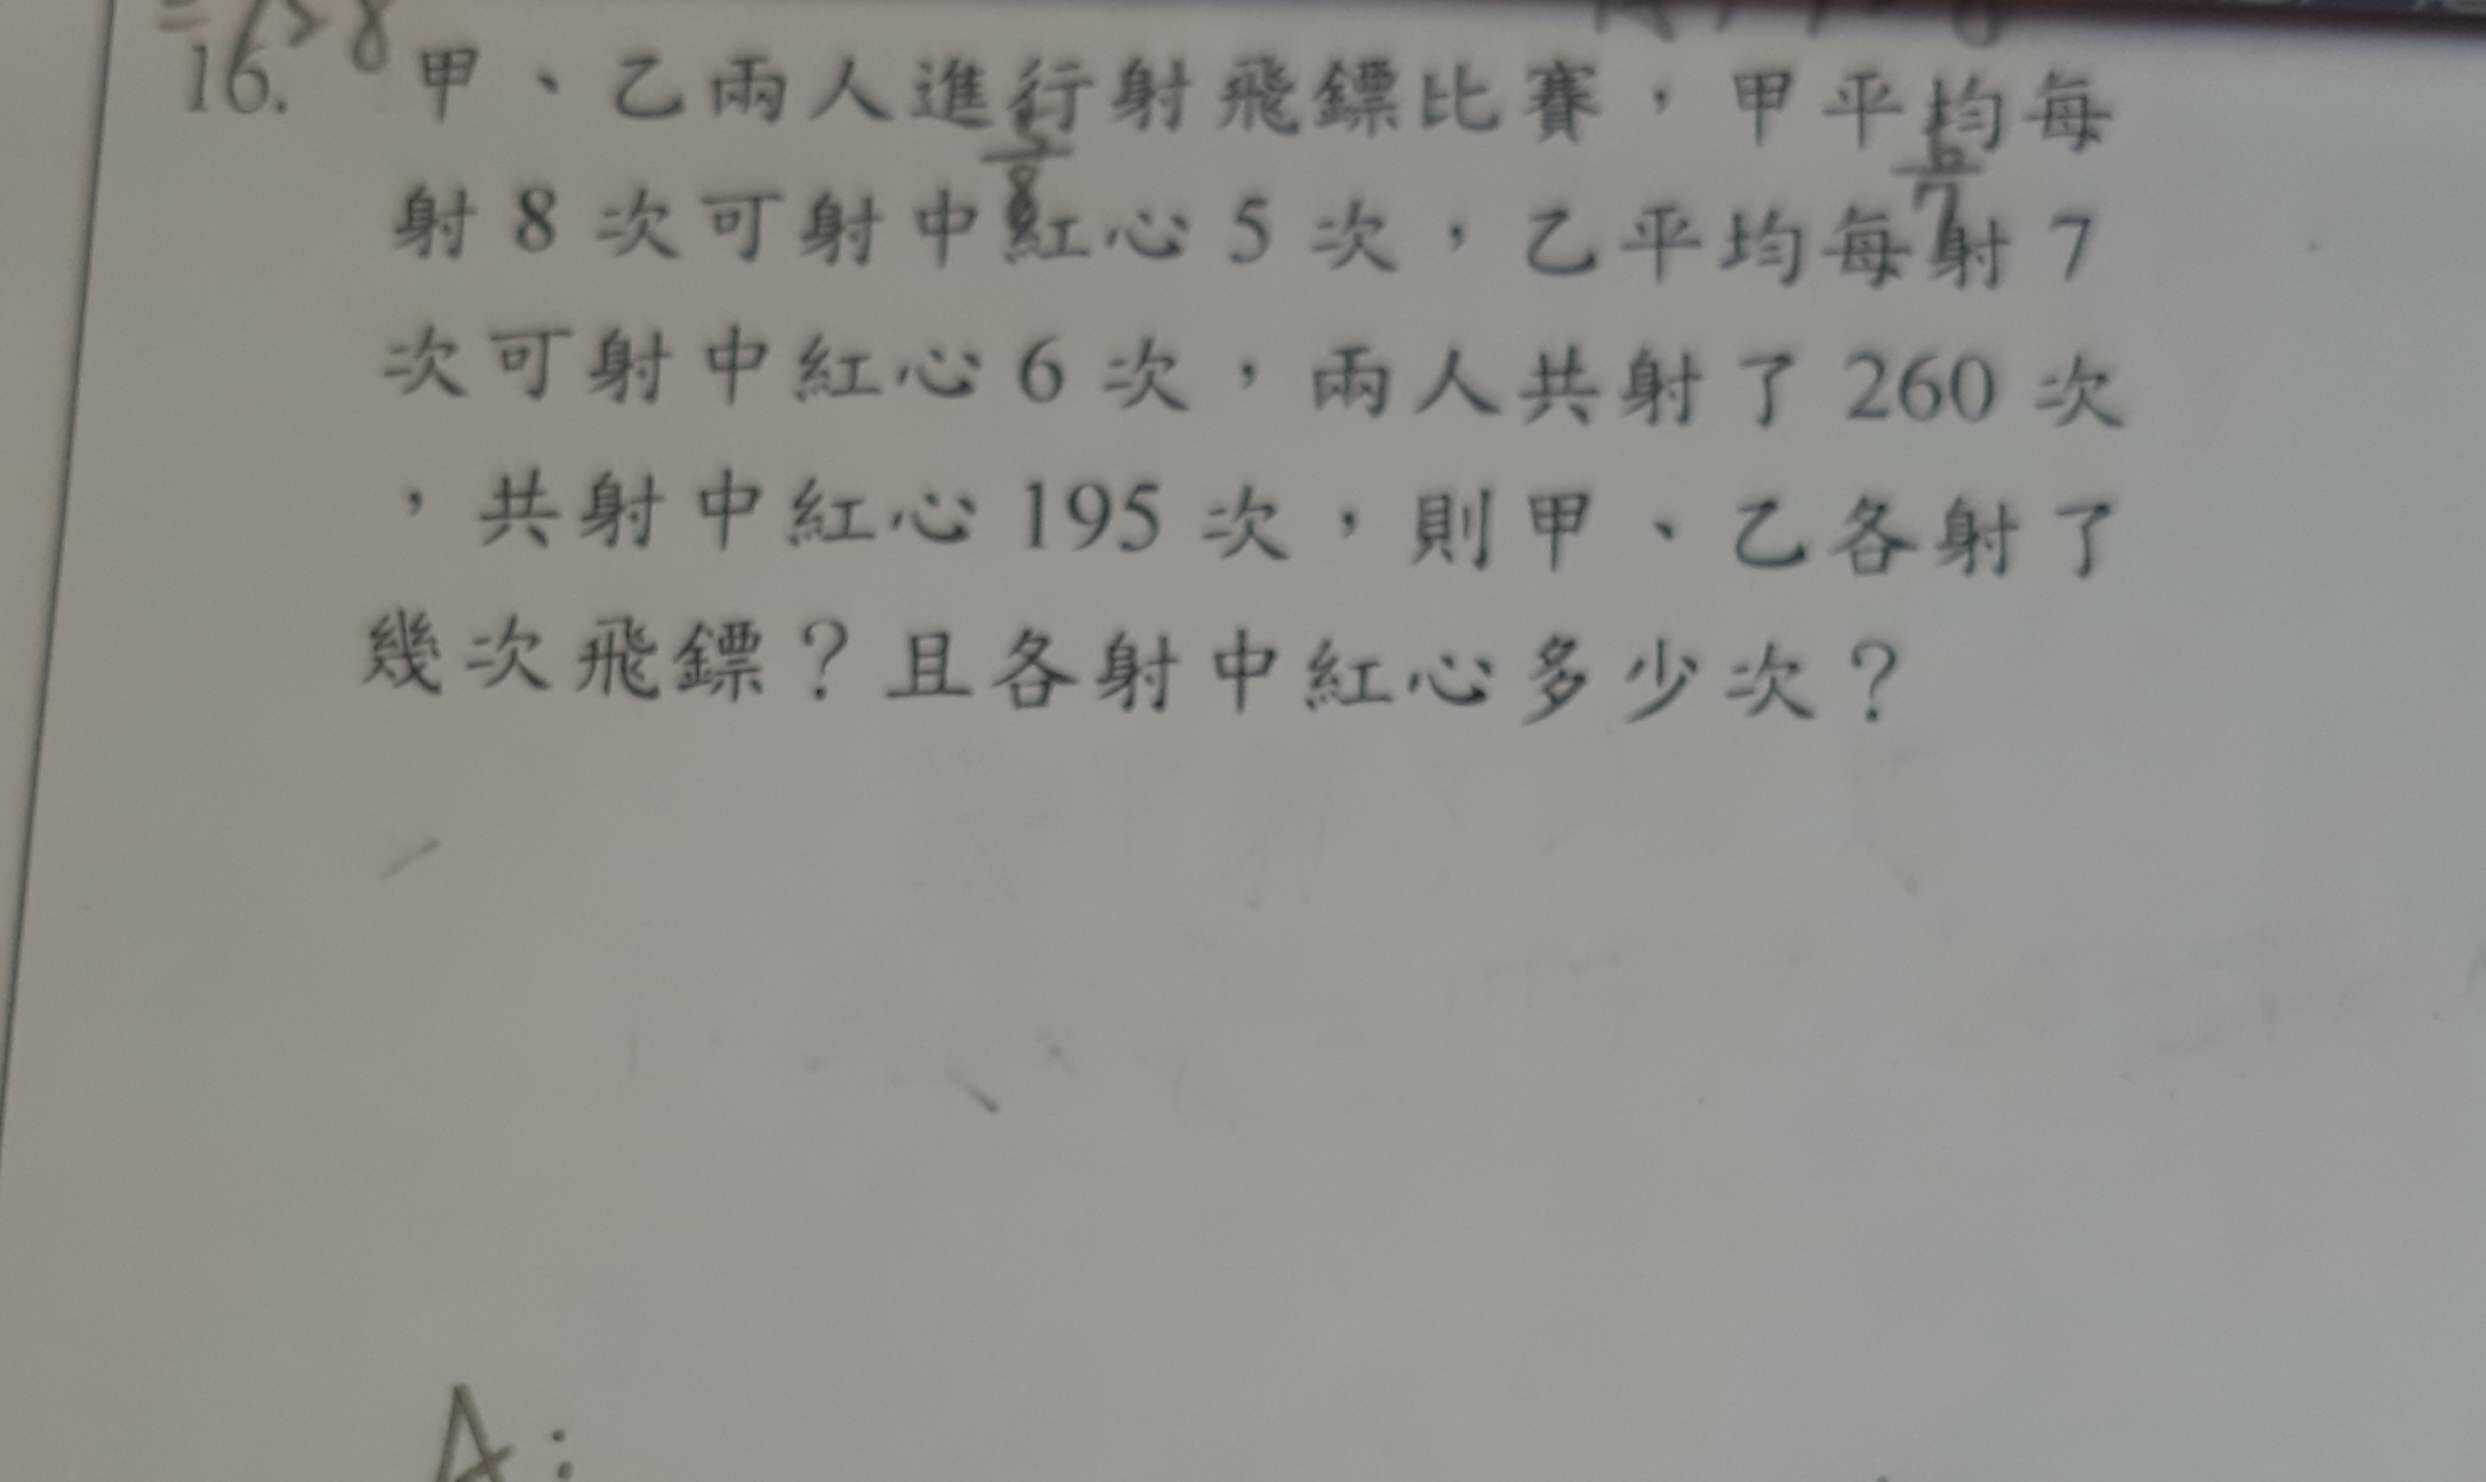 16. 甲、乙兩人進行射飛鏢比賽,甲平均每
5/8
6/7
射 8 次可射中紅心 5 次,乙平均每射 7
次可射中紅心 6 次,兩人共射了 260 次
,共射中紅心 195 次,則甲、乙各射了
幾次飛鏢?且各射中紅心多少次?
A: